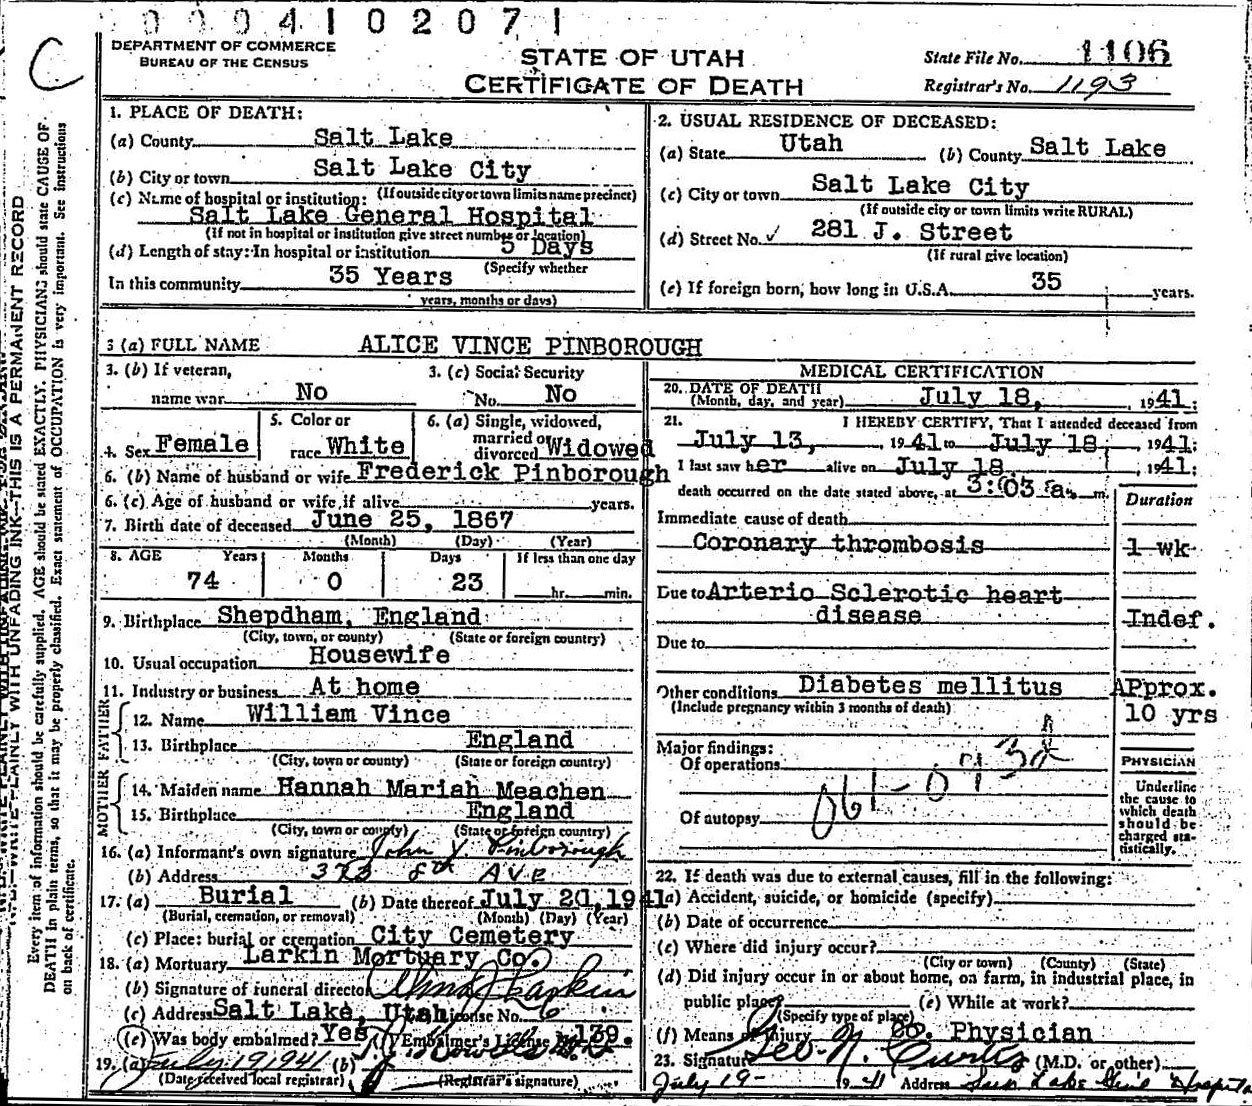 0004102071
C
DEPARTMENT OF COMMERCE
BUREAU OF THE CENSUS
STATE OF UTAH
CERTIFICATE OF DEATH
State File No. 1106
Registrar's No. 1193
1. PLACE OF DEATH:
(a) County Salt Lake
(b) City or town Salt Lake City
(If outside city or town limits name precinct)
(c) Name of hospital or institution:
Salt Lake General Hospital
(If not in hospital or institution give street number or location)
(d) Length of stay: In hospital or institution 5 Days
(Specify whether
In this community 35 Years
years, months or days)
2. USUAL RESIDENCE OF DECEASED:
(a) State Utah (b) County Salt Lake
(c) City or town Salt Lake City
(If outside city or town limits write RURAL)
(d) Street No. 281 J. Street
(If rural give location)
(e) If foreign born, how long in U.S.A. 35 years.
3 (a) FULL NAME ALICE VINCE PINBOROUGH
3. (b) If veteran,
name war No
3. (c) Social Security
No. No
4. Sex Female
5. Color or
race White
6. (a) Single, widowed,
married or
divorced Widowed
6. (b) Name of husband or wife Frederick Pinborough
6. (c) Age of husband or wife if alive years.
7. Birth date of deceased June 25, 1867
(Month) (Day) (Year)
8. AGE Years Months Days If less than one day
74 0 23 hr. min.
9. Birthplace Shepdham, England
(City, town, or county) (State or foreign country)
10. Usual occupation Housewife
11. Industry or business At home
FATHER
12. Name William Vince
13. Birthplace England
(City, town or county) (State or foreign country)
MOTHER
14. Maiden name Hannah Mariah Meachen
15. Birthplace England
(City, town or county) (State or foreign country)
16. (a) Informant's own signature John Y. Pinborough
(b) Address 373 8th AVE
17. (a) Burial (b) Date thereof July 21, 1941
(Burial, cremation, or removal) (Month) (Day) (Year)
(c) Place: burial or cremation City Cemetery
18. (a) Mortuary Larkin Mortuary Co.
(b) Signature of funeral director Larkin
(c) Address Salt Lake, Utah License No. 6
(e) Was body embalmed? Yes (f) Embalmer's License No. 139.
19. (a) July 19 1941 (b)
(Date received local registrar) (Registrar's signature)
MEDICAL CERTIFICATION
20. DATE OF DEATH
(Month, day, and year) July 18, 1941.
21. I HEREBY CERTIFY, That I attended deceased from
July 13, 1941 to July 18, 1941.
I last saw her alive on July 18 1941.
death occurred on the date stated above, at 3:03 a. m.
Duration
Immediate cause of death
Coronary thrombosis 1 wk
Due to Arterio Sclerotic heart
disease Indef.
Due to
Other conditions Diabetes mellitus APprox.
(Include pregnancy within 3 months of death) 10 yrs
Major findings:
Of operations
Of autopsy
PHYSICIAN
Underline
the cause to
which death
should be
charged sta-
tistically.
22. If death was due to external causes, fill in the following:
(a) Accident, suicide, or homicide (specify)
(b) Date of occurrence
(c) Where did injury occur?
(City or town) (County) (State)
(d) Did injury occur in or about home, on farm, in industrial place, in
public place? (e) While at work?
(Specify type of place)
(f) Means of injury Co. Physician
23. Signature Geo. N. Curtis (M.D. or other)
July 19- 1941 Address Salt Lake Gen'l Hospital
WRITE PLAINLY WITH UNFADING INK—THIS IS A PERMANENT RECORD
Every item of information should be carefully supplied. AGE should be stated EXACTLY. PHYSICIANS should state CAUSE OF
DEATH in plain terms, so that it may be properly classified. Exact statement of OCCUPATION is very important. See instructions
on back of certificate.